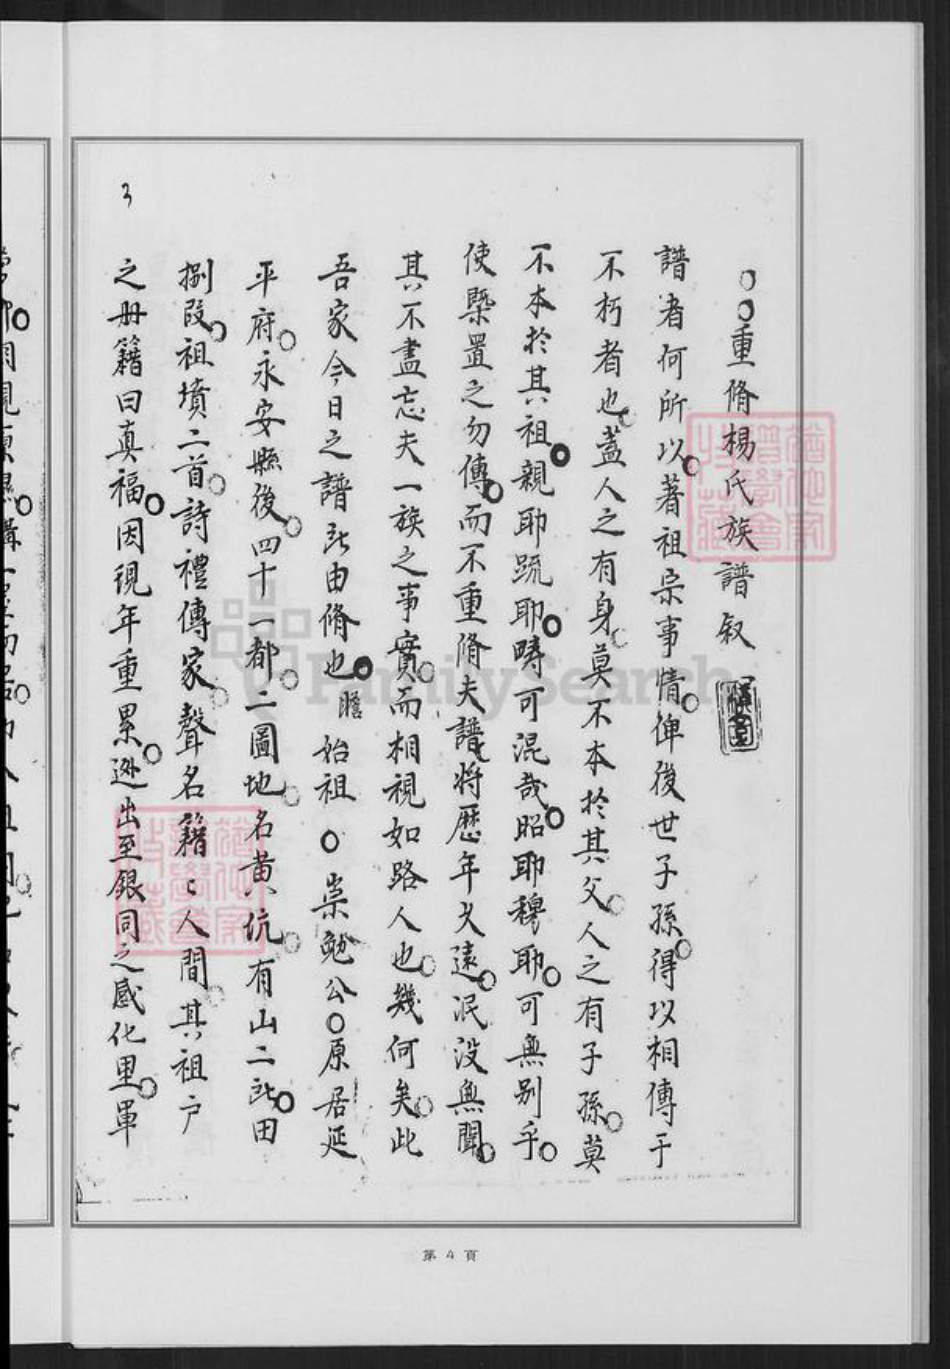 重脩楊氏族譜叙
譜者何所以著祖宗事情俾後世子孫得以相傳于
不朽者也蓋人之有身莫不本於其父人之有子孫莫
不本於其祖親耶疏耶疇可混哉昭耶穆耶可無别乎
使槩置之勿傳而不重脩夫譜將歷年久遠泯没無聞
其不盡忘夫一族之事實而相視如路人也幾何矣此
吾家今日之譜所由脩也瞻始祖崇勉公原居延
平府永安縣後四十一都二圖地名黄伉有山二所田
捌段祖墳二首詩禮傳家聲名籍〻人間其祖户
之册籍曰真福因現年重累逊出至銀同之感化里軍
3
第4頁
FamilySearch